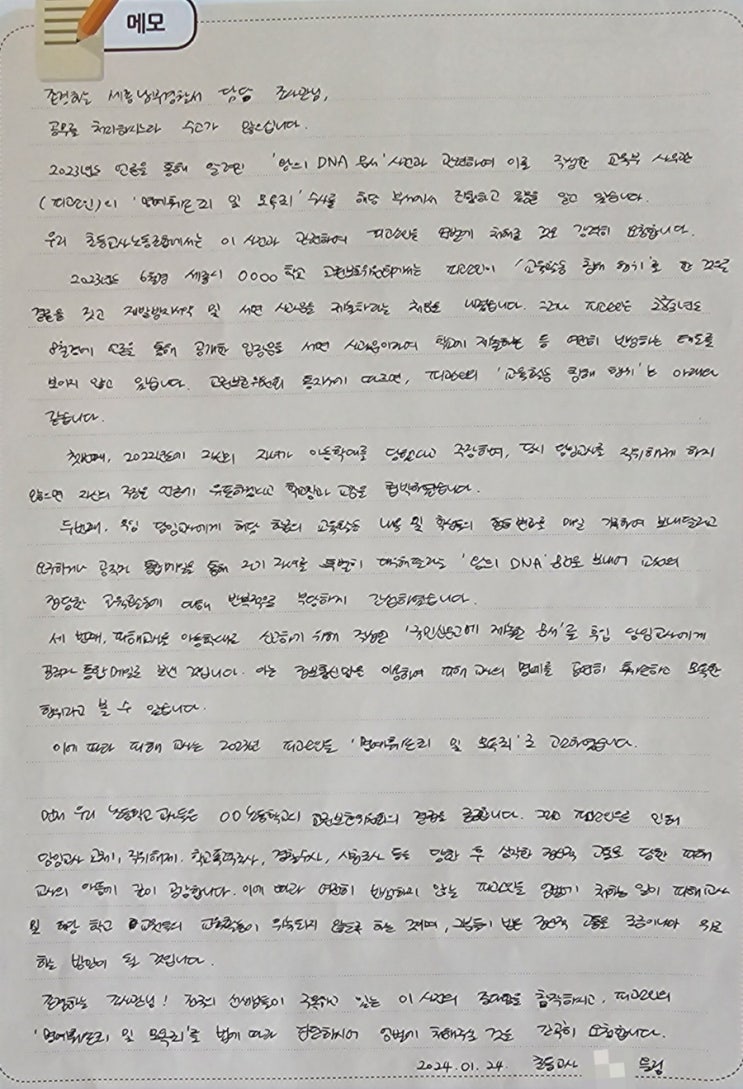 메모
존경하는 세종남부경찰서 담당 조사관님,
공무로 처리하시느라 수고가 많으십니다.
2023년도 언론을 통해 알려진 '왕의 DNA 용서' 사건과 관련하여 이를 작성한 교육부 사무관
(피고소인)의 '명예훼손죄 및 모욕죄' 수사를 해당 부서에서 진행하고 있음을 알고 있습니다.
우리 초등교사노동조합에서는 이 사건과 관련하여 피고소인을 엄벌에 처해줄 것을 강력히 요청합니다.
2023년도 6월경 세종시 0000 학교 교권보호위원회에서는 피고소인이 '교육활동 침해 행위'를 한 것으로
결론을 짓고 재발방지서약 및 서면 사과문을 제출하라는 처분을 내렸습니다. 그러나 피고소인은 2023년도
8월경에 언론을 통해 공개한 입장문을 서면 사과문이라며 학교에 제출하는 등 여전히 반성하는 태도를
보이지 않고 있습니다. 교권보호위원회 통지서에 따르면, 피고소인의 '교육활동 침해 행위'는 아래와
같습니다.
첫번째, 2022년도에 자신의 자녀가 아동학대를 당했다고 주장하며, 당시 담임교사를 직위해제 하지
않으면 자신의 직장은 언론에 유포하겠다고 학교장과 교감을 협박하였습니다.
두번째, 후임 담임교사에게 해당 학생의 교육활동 내용 및 학생들의 행동변화를 매일 기록하여 보내달라고
요구하거나 공직자 통합메일을 통해 자기 자녀를 특별히 대해달라는 '왕의 DNA' 용서를 보내어 교사의
정당한 교육활동에 대해 반복적으로 부당하게 간섭하였습니다.
세 번째, 피해교사를 아동학대로 신고하기 위해 작성한 '국민신문고에 제출한 용서'를 후임 담임교사에게
공직자 통합메일로 보낸 것입니다. 이는 정보통신망을 이용하여 피해 교사의 명예를 분명히 훼손하고 모욕한
행위라고 볼 수 있습니다.
이에 따라 피해 교사는 2023년 피고소인을 '명예훼손죄 및 모욕죄'로 고소하였습니다.
먼저 우리 초등학교 교사들은 00초등학교의 교권보호위원회의 결정을 존중합니다. 그리고 피고소인으로 인해
담임교사 교체, 직위해제, 학교폭력조사, 경찰수사, 시청조사 등을 당한 후 심각한 정신적 고통을 당한 피해
교사의 아픔에 깊이 공감합니다. 이에 따라 여전히 반성하지 않는 피고소인을 엄벌에 처하는 일이 피해교사
및 해당 학교 교원들의 교육활동이 위축되지 않도록 하는 것이며, 그분들이 받은 정신적 고통을 조금이나마 위로
하는 방안이 될 것입니다.
존경하는 조사관님! 전국의 선생님들이 주목하고 있는 이 사건의 중대함을 참작하시고, 피고소인의
'명예훼손죄 및 모욕죄'를 법에 따라 판단하시어 엄벌에 처해주실 것을 간곡히 요청합니다.
2024.01.24. 초등교사 올림